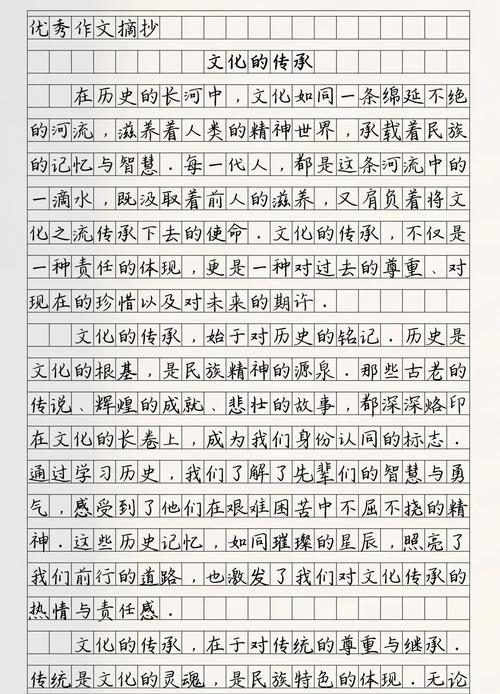 优秀作文摘抄
文化的传承
在历史的长河中，文化如同一条绵延不绝
的河流，滋养着人类的精神世界，承载着民族
的记忆与智慧．每一代人，都是这条河流中的
一滴水，既汲取着前人的滋养，又肩负着将文
化之流传承下去的使命．文化的传承，不仅是
一种责任的体现，更是一种对过去的尊重、对
现在的珍惜以及对未来的期许．
文化的传承，始于对历史的铭记．历史是
文化的根基，是民族精神的源泉．那些古老的
传说、辉煌的成就、悲壮的故事，都深深烙印
在文化的长卷上，成为我们身份认同的标志．
通过学习历史，我们了解了先辈们的智慧与勇
气，感受到了他们在艰难困苦中不屈不挠的精
神．这些历史记忆，如同璀璨的星辰，照亮了
我们前行的道路，也激发了我们对文化传承的
热情与责任感．
文化的传承，在于对传统的尊重与继承．
传统是文化的灵魂，是民族特色的体现．无论